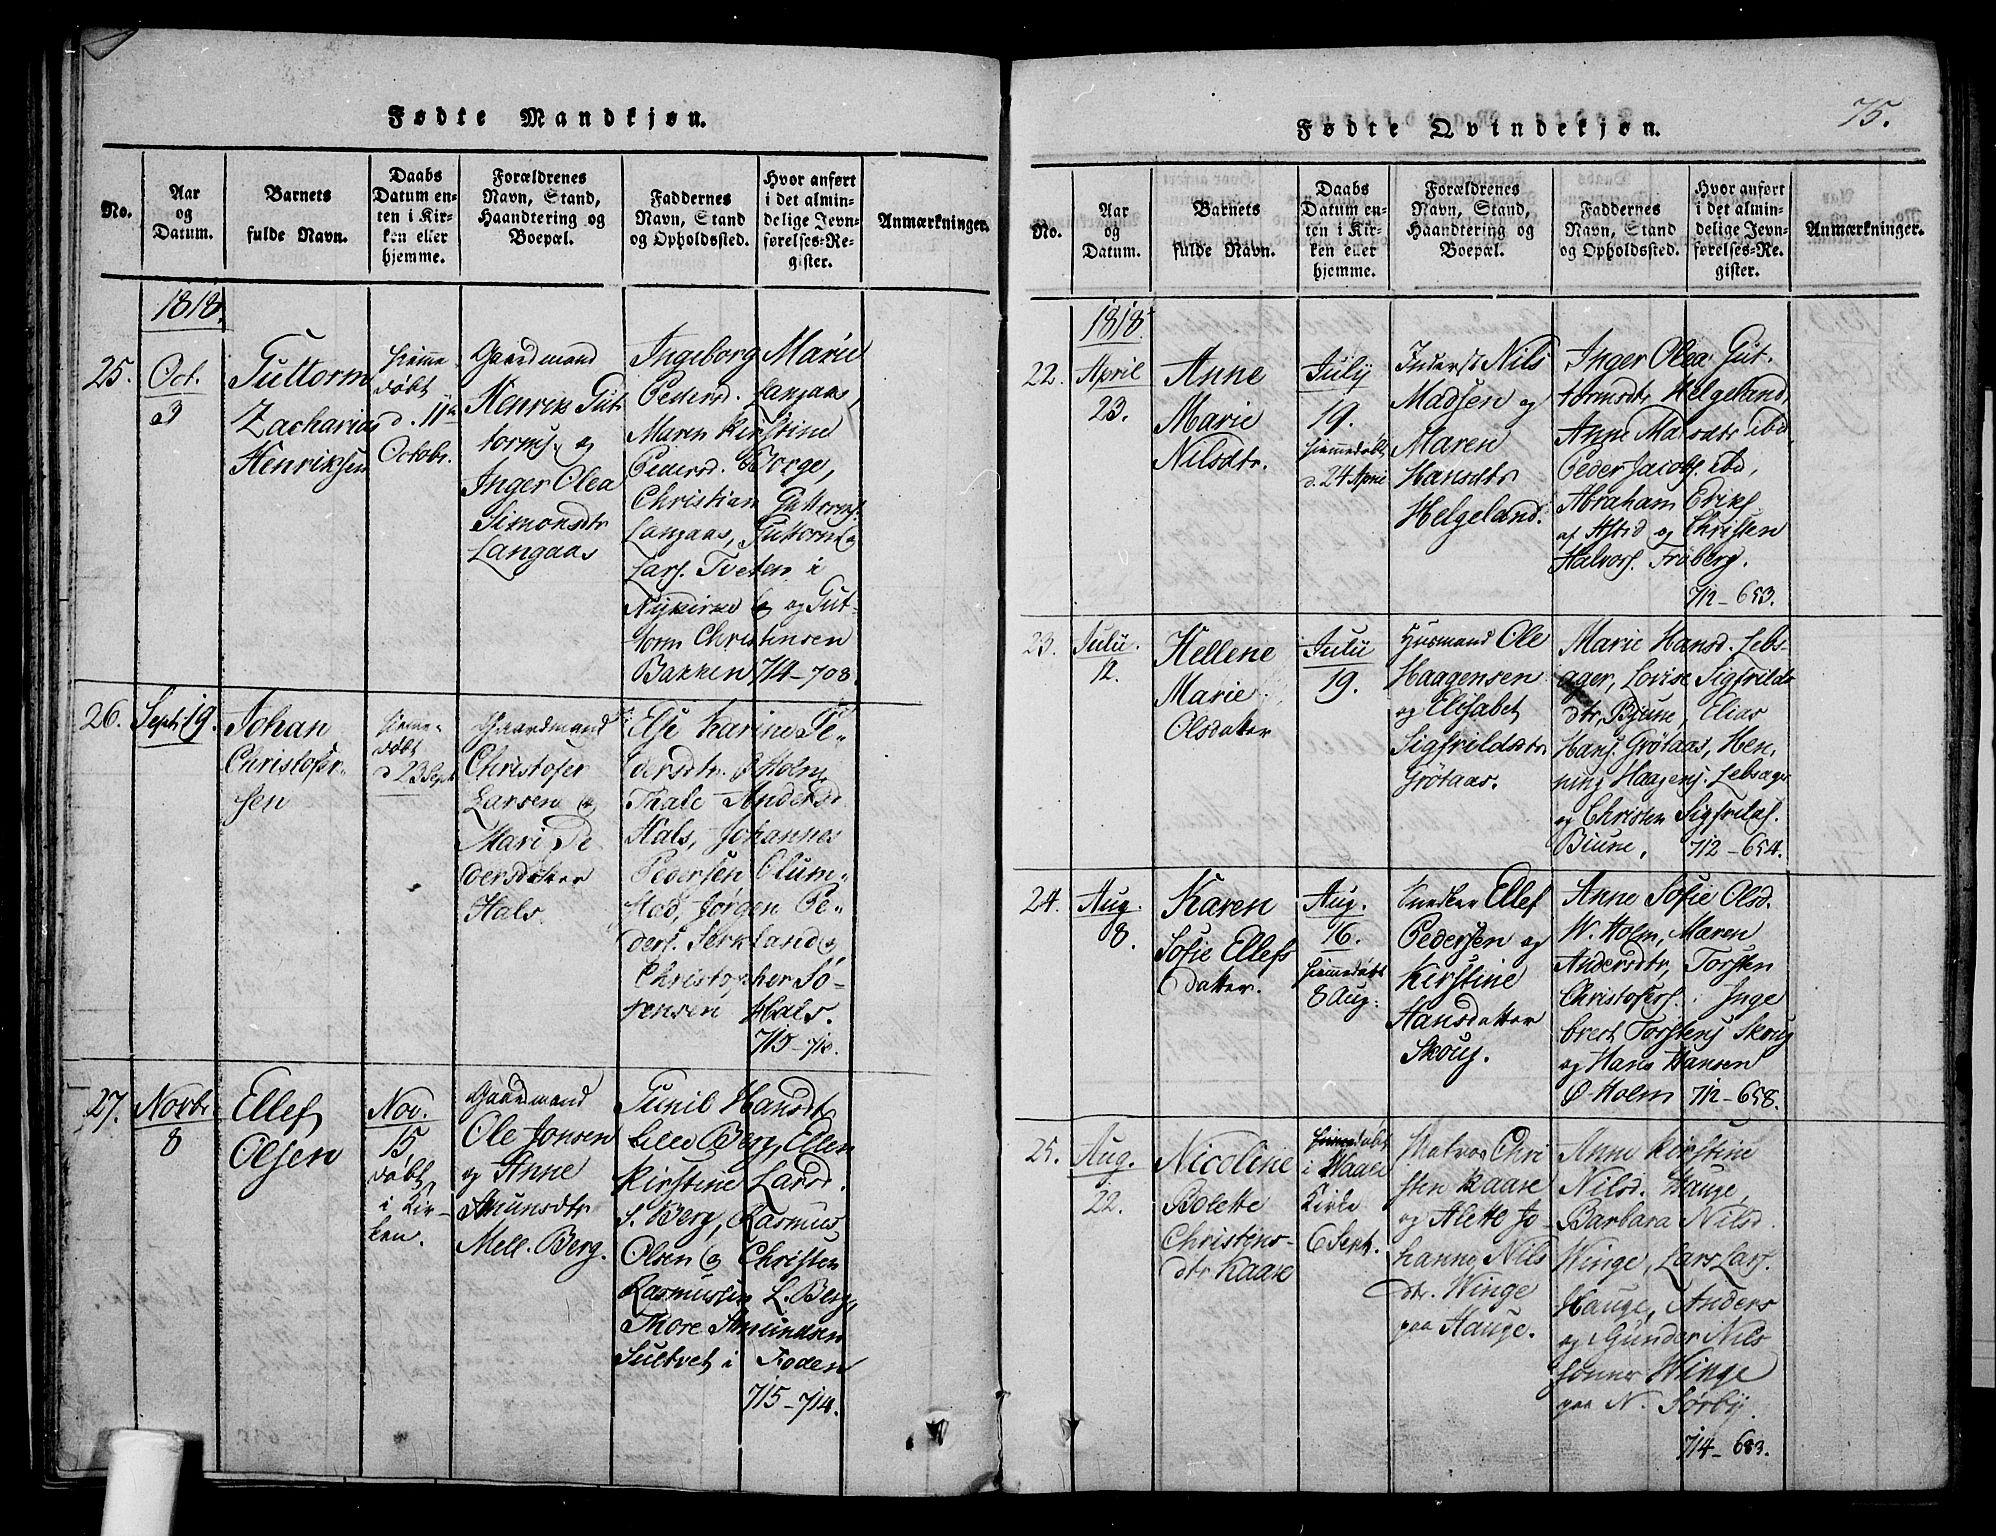 Fødte Mandkjøn.
No.
Aar
og
Datum.
Barnets
fulde Navn.
Daabs
Datum en-
ten i Kir-
ken eller
hjemme.
Forældrenes
Navn, Stand,
Haandtering og
Boepæl.
Faddernes
Navn, Stand
og Opholdssted.
Hvor anført
i det almin-
delige Jevn-
førelses-Re-
gister.
Anmærkninger.
1818.
25.
Oct.
3
Guttorm
Zacharias
Henriksen
hjemme
døbt
d. 11te
Octobr.
Gaardmand
Henrik Gut
torms. og
Inger Olea
Simonsdtr
Langaas
Ingeborg Marie
Pedersd. Langaas,
Maren Kirstine
Pedersd. Borge,
Christian Guttorms.
Langaas, Guttorm
Lars. Tveten i
Nykirke og Gut-
torm Christensen
Bakken 714-708.
26.
Sept. 19.
Johan
Christofer-
sen
hjemme-
døbt
d 23 Sept
Gaardmand
Christofer
Larsen og
Mari Pe
dersdatter
Hals.
Else Karine Pe-
dersdtr. Holm
Thale Andersd.
Hals, Johannes
Pedersen Olum-
stad, Jørgen Pe-
ders. Serkland og
Christopher Sö-
rensen Hals.
715-710.
27.
Novbr.
8
Ellef
Olsen
Nov.
15
døbt
i Kir-
ken.
Gaardmand
Ole Jonsen
og Anne
Amunsdtr
Mell. Berg.
Gunil Hansdt
Lille Berg, Ellen
Kirstine Larsd.
S. Berg, Rasmus
Olsen og Christen
Rasmussen L. Berg,
Thore Amundsen
Sultvet i Foden
715-714.
75.
Fødte Qvindekjøn.
No.
Aar
og
Datum.
Barnets
fulde Navn.
Daabs
Datum en-
ten i Kir-
ken eller
hjemme.
Forældrenes
Navn, Stand,
Haandtering og
Boepæl.
Faddernes
Navn, Stand
og Opholdssted.
Hvor anført
i det almin-
delige Jevn-
førelses-Re-
gister.
Anmærkninger.
1818.
22.
April
23.
Anne
Marie
Nilsdtr.
July
19.
hjemmedøbt
d. 24 April
Inderst Nils
Madsen og
Maren
Hansdtr
Helgeland.
Inger Olea Gut-
tormsdtr Helgeland,
Anne Madsdtr ibd,
Peder Jacobs. ibd,
Abraham Eriks.
af Astad og Christen
Halvors. Fröberg.
712-653.
23.
Julii.
12.
Hellene
Marie
Olsdatter
Julii
19.
Husmand Ole
Haagensen
og Elisabet
Sigfrildsdtr
Grötaas.
Marie Hansd. Lebs-
ager, Lovise Sigfrilds
dtr, Bjune, Elias
Hans. Grötaas, Hen,
ning Haagens. Lebsager
og Christen Sigfrilds.
Biune, 712-654.
24.
Aug.
8.
Karen
Sofie Ellefs
datter.
Aug.
16.
hjemmedøbt
8 Aug.
Snedker Ellef
Pedersen og
Kirstine
Hansdatter
Skoug.
Anne Sofie Olsd.
W. Holm, Maren
Andersdtr, Torsten
Christofers. Inge
bret Torstens. Skoug
og Hans Hansen
Ø Holm 712-658.
25.
Aug.
22.
Nicoline
Bolette
Christens-
dtr Kaase
i Waale
Kirke
6 Sept.
Matros Chri
sten Kaase
og Alette Jo-
hanne Nils
dtr. Winge
paa Hauge.
Anne Kirstine
Nilsd. Hauge,
Barbara Nilsd.
Winge, Lars Lars.
Hauge, Anders
og Gunder Nils
sønner Winge
paa N. Sörby.
714-683.